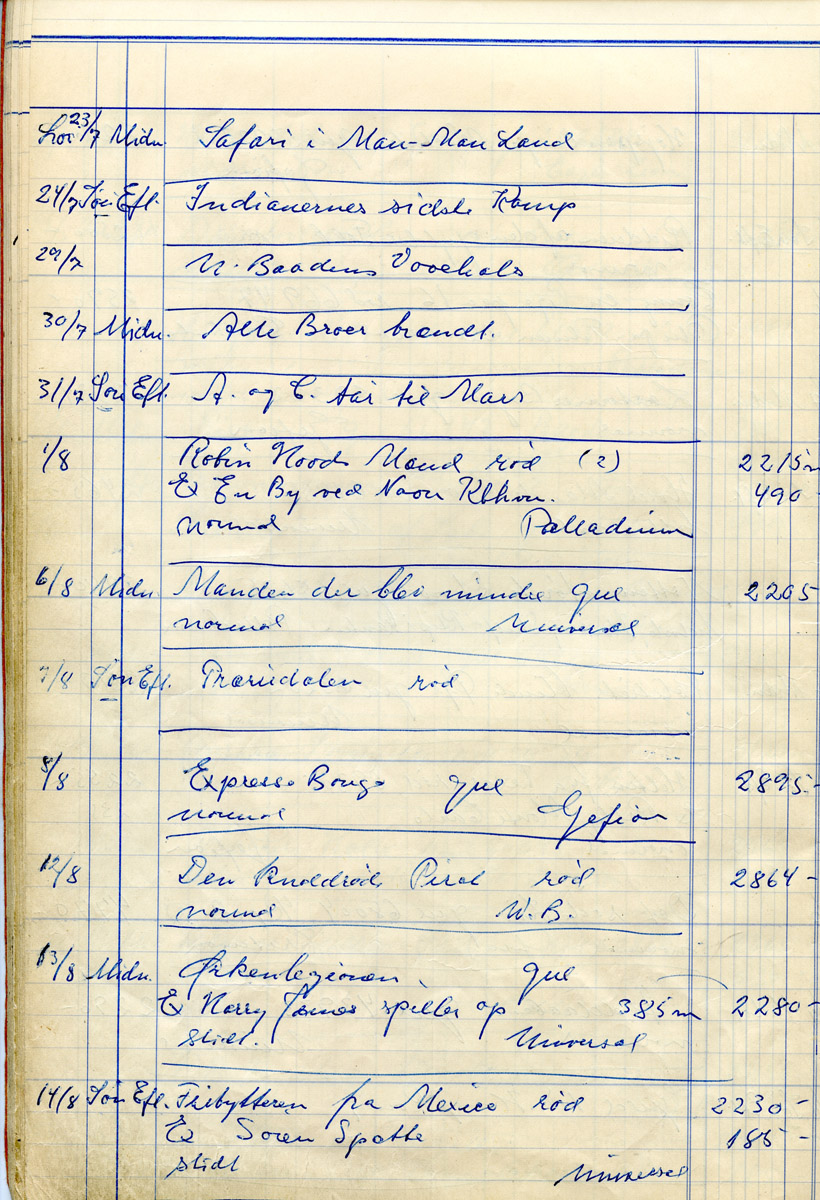 Lör 23/7 Midn. Safari i Mau-Mau Land
24/7 Søn Eft. Indianernes sidste Kamp
29/7 U-Baadens Vovehals
30/7 Midn. Alle Broer brændt.
31/7 Søn Eft. A. og C. tår til Mars
1/8 Robin Hoods Mænd rød (2) 2215m
Ex En By ved Navn Kbhvn. 490
normal Palladium
6/8 Midn. Manden der blev mindre gul 2205
normal Universal
7/8 Søn Eft. Præriedalen rød
8/8 Expresso Bongo gul 2895-
normal Gefion
12/8 Den Knaldrøde Pirat rød 2864-
normal W.B.
13/8 Midn. Ørkenlegionen gul
Ex Harry James spiller op 385m 2280-
slidt. Universal
14/8 Søn Eft. Fribytteren fra Mexico rød 2230-
Ex Søren Spætte 185-
slidt Universal